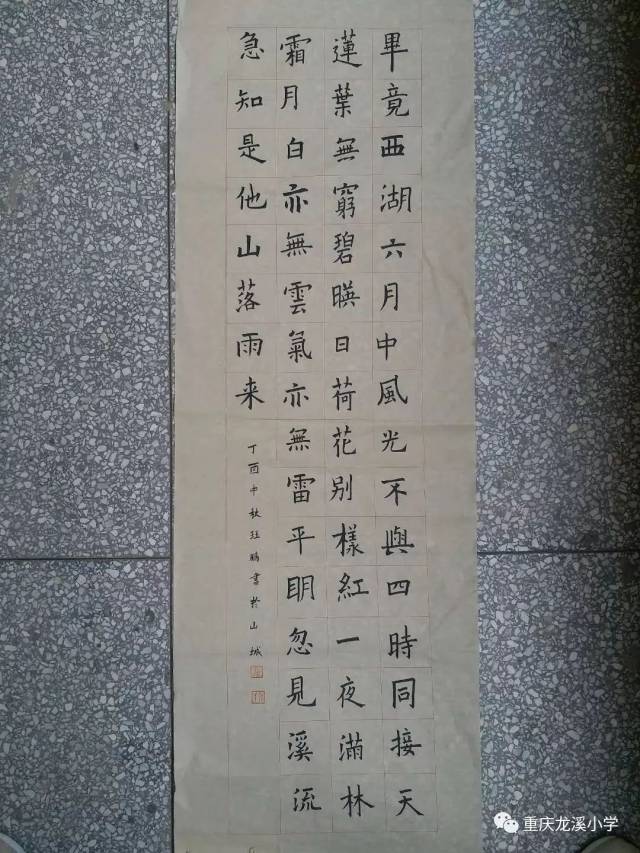 畢竟西湖六月中風光不與四時同接天
蓮葉無窮碧暎日荷花別樣紅一夜滿林
霜月白亦無雲氣亦無雷平眀忽見溪流
急知是他山落雨来
丁酉中秋汪鵬書於山城
重庆龙溪小学